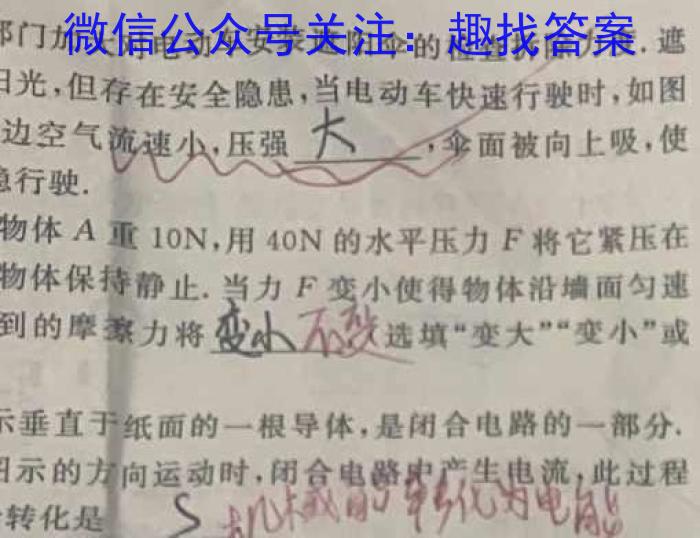 微信公众号关注：趣找答案
部门加大对电动车安装遮阳伞的检查拆除力度.遮
日光,但存在安全隐患,当电动车快速行驶时,如图
边空气流速小,压强 大 ,伞面被向上吸,使
稳行驶.
物体 A 重 10N,用 40N 的水平压力 F 将它紧压在
物体保持静止.当力 F 变小使得物体沿墙面匀速
到的摩擦力将 变小 不变 选填“变大”“变小”或
示垂直于纸面的一根导体,是闭合电路的一部分.
图示的方向运动时,闭合电路中产生电流,此过程
转化是 S 机械能转化为电能